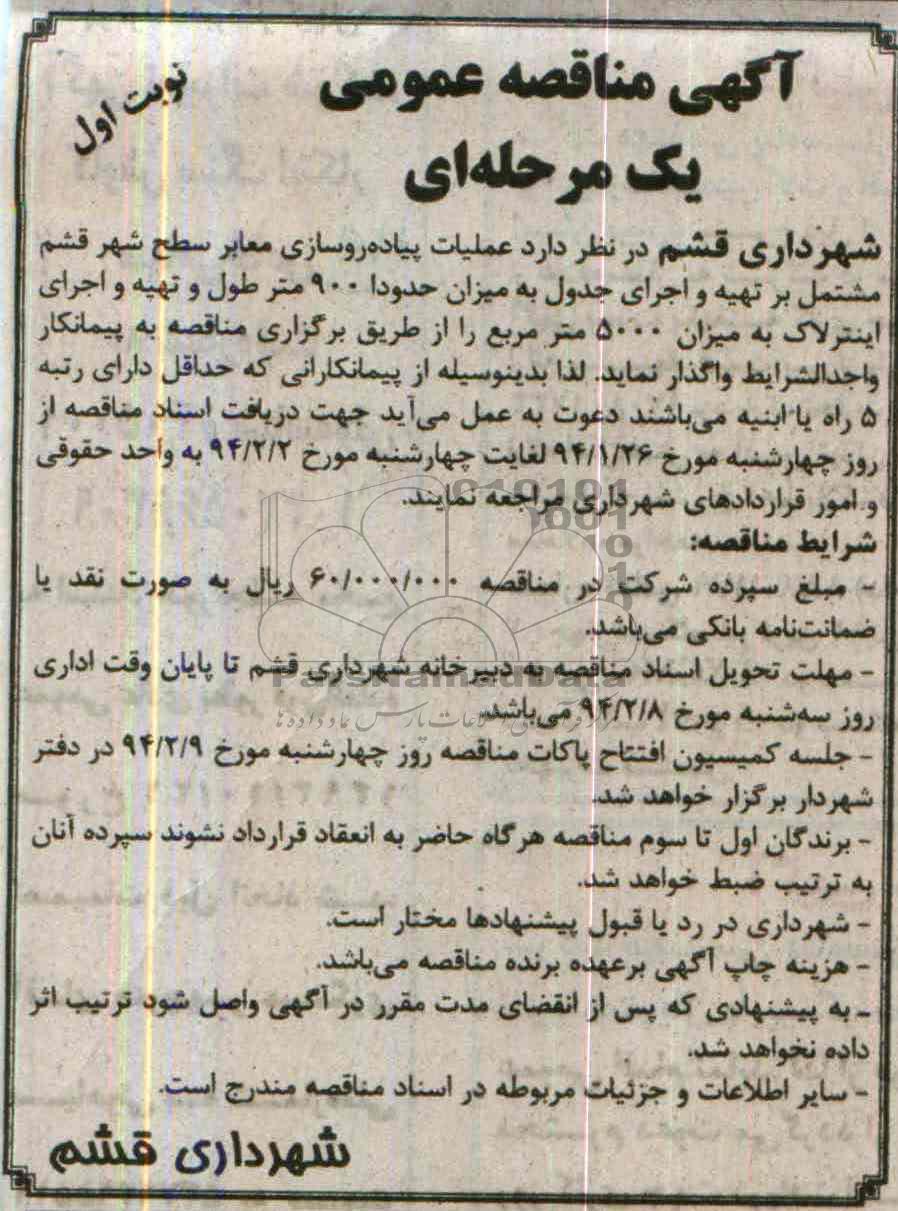 آگهی مناقصه عمومی
نوبت اول
یک مرحله‌ای
شهرداری قشم در نظر دارد عملیات پیاده‌روسازی معابر سطح شهر قشم
مشتمل بر تهیه و اجرای جدول به میزان حدودا ۹۰۰ متر طول و تهیه و اجرای
اینترلاک به میزان ۵۰۰۰ متر مربع را از طریق برگزاری مناقصه به پیمانکار
واجدالشرایط واگذار نماید. لذا بدینوسیله از پیمانکارانی که حداقل دارای رتبه
۵ راه یا ابنیه می‌باشند دعوت به عمل می‌آید جهت دریافت اسناد مناقصه از
روز چهارشنبه مورخ ۹۴/۱/۲۶ لغایت چهارشنبه مورخ ۹۴/۲/۲ به واحد حقوقی
و امور قراردادهای شهرداری مراجعه نمایند.
شرایط مناقصه:
- مبلغ سپرده شرکت در مناقصه ۶۰/۰۰۰/۰۰۰ ریال به صورت نقد یا
ضمانت‌نامه بانکی می‌باشد.
- مهلت تحویل اسناد مناقصه به دبیرخانه شهرداری قشم تا پایان وقت اداری
روز سه‌شنبه مورخ ۹۴/۲/۸ می‌باشد.
- جلسه کمیسیون افتتاح پاکات مناقصه روز چهارشنبه مورخ ۹۴/۲/۹ در دفتر
شهردار برگزار خواهد شد.
- برندگان اول تا سوم مناقصه هرگاه حاضر به انعقاد قرارداد نشوند سپرده آنان
به ترتیب ضبط خواهد شد.
- شهرداری در رد یا قبول پیشنهادها مختار است.
- هزینه چاپ آگهی برعهده برنده مناقصه می‌باشد.
- به پیشنهادی که پس از انقضای مدت مقرر در آگهی واصل شود ترتیب اثر
داده نخواهد شد.
- سایر اطلاعات و جزئیات مربوطه در اسناد مناقصه مندرج است.
شهرداری قشم
ParsNamadData